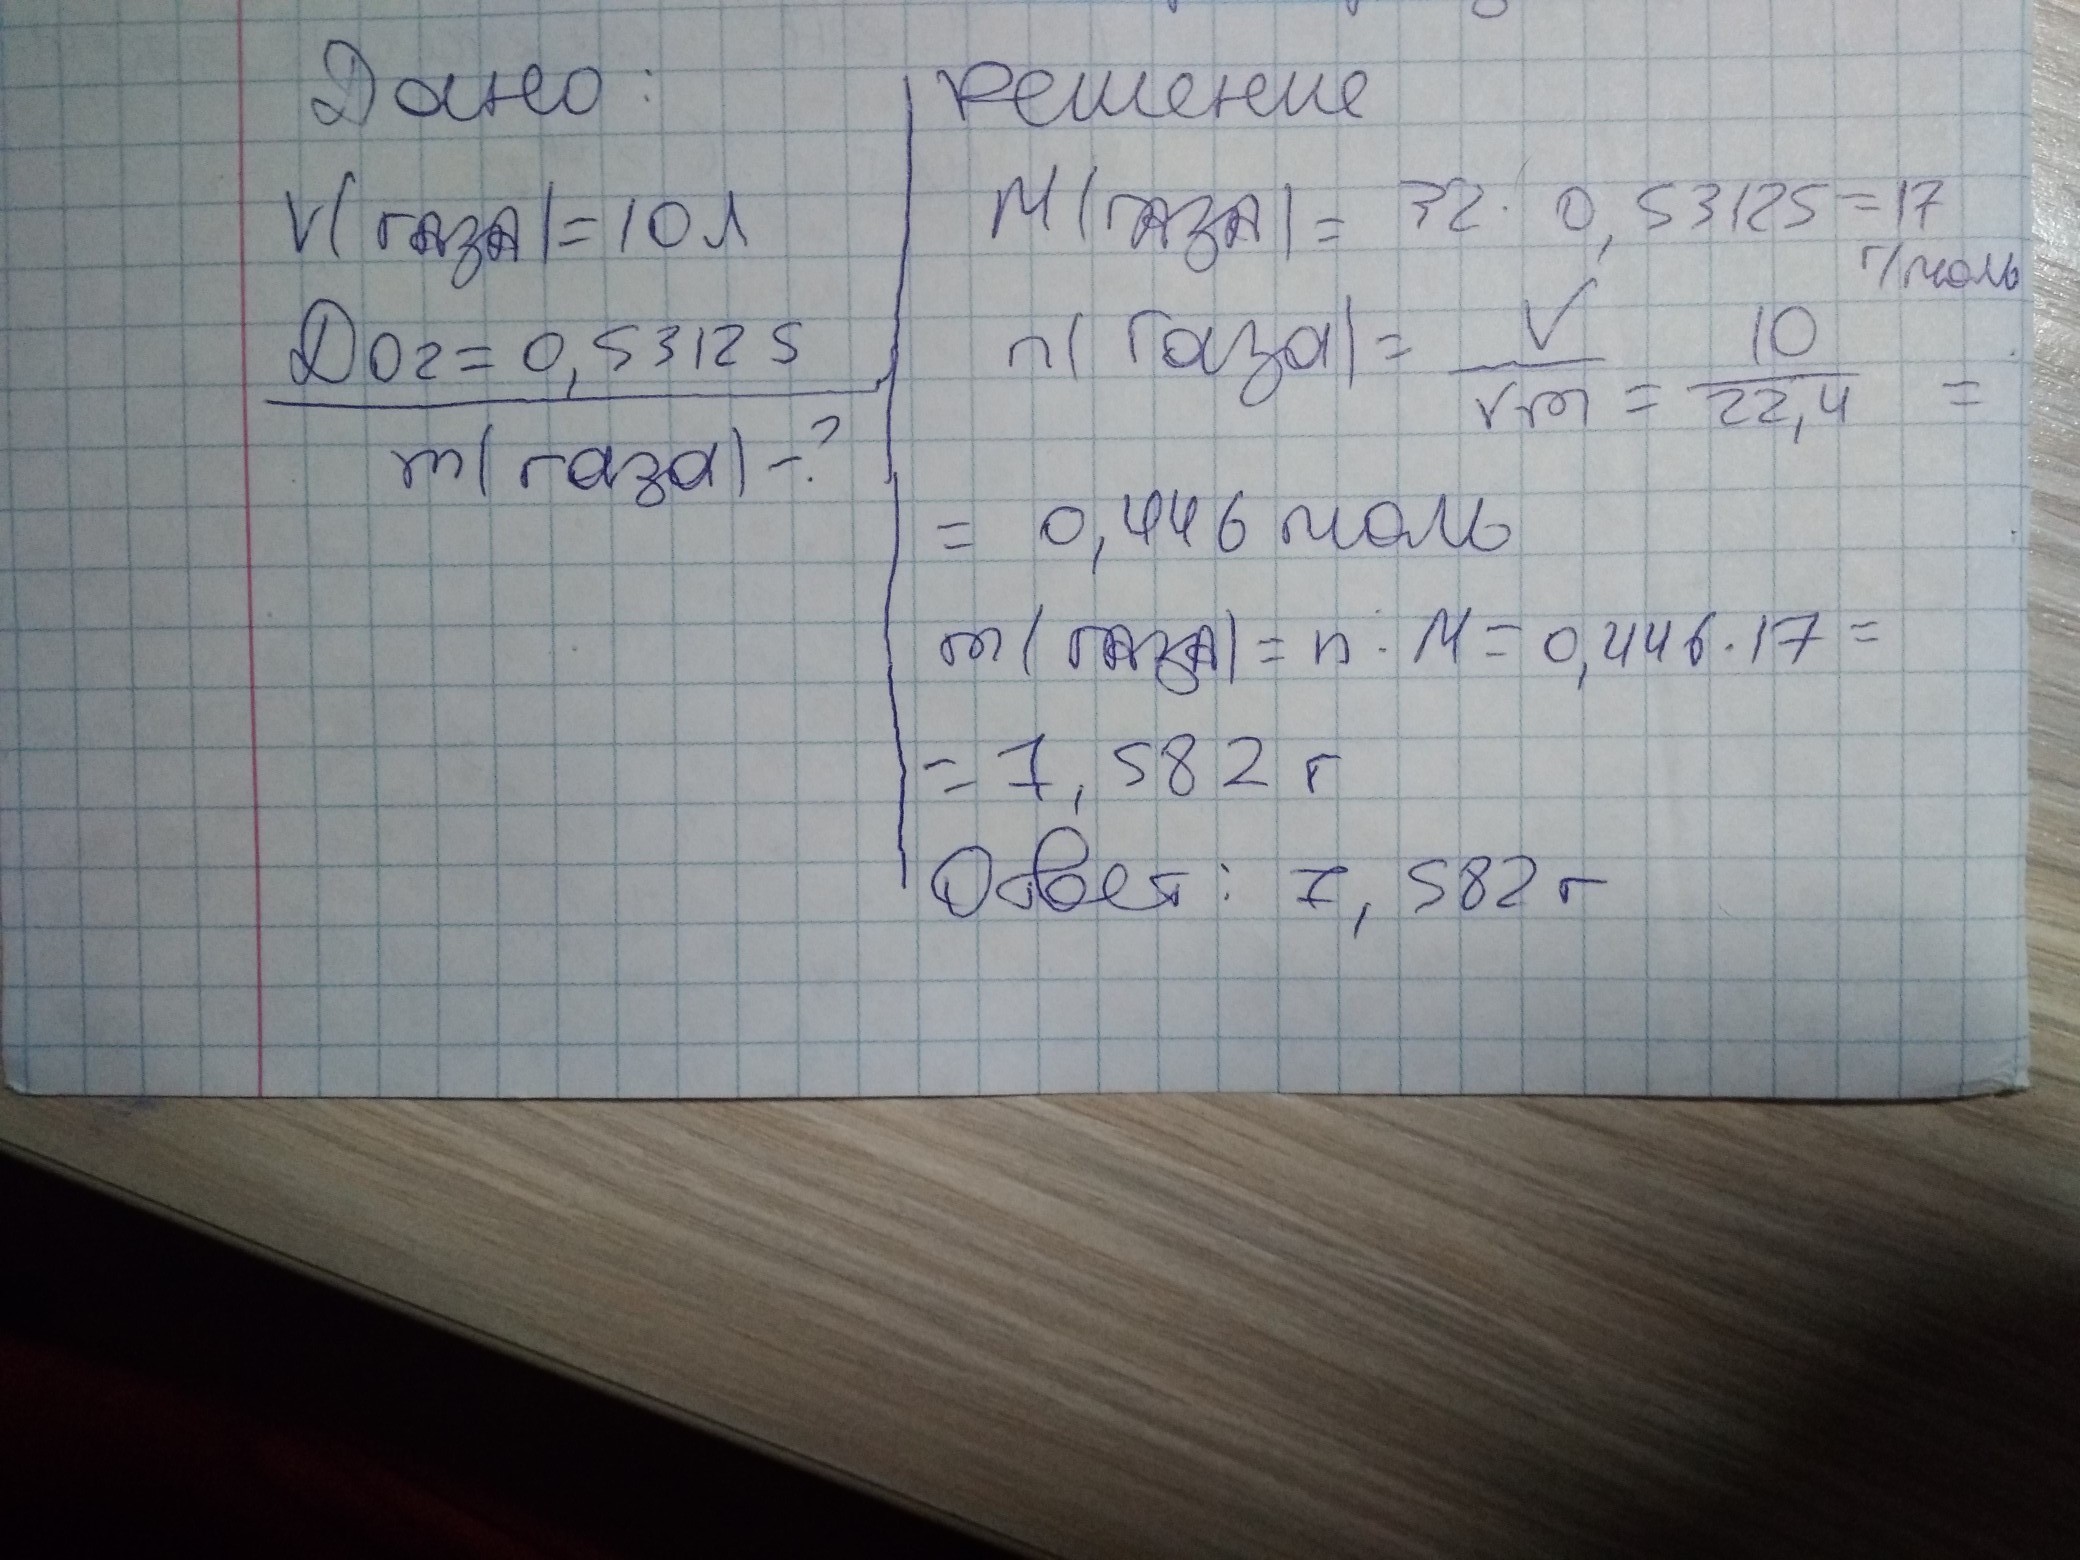 Дано:
V(газа)=10л
Dо2=0,53125
m(газа)-?
решение
М(газа)= 32· 0,53125=17
г/моль
n(газа)= V/Vm = 10/22,4 =
= 0,446 моль
m(газа)=n·М=0,446·17=
=7,582 г
Ответ: 7,582г